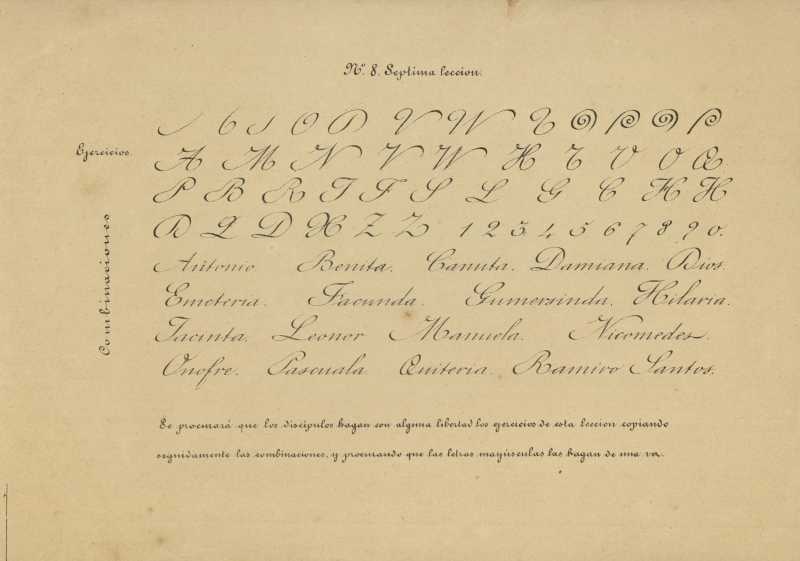 Nº 8. Septima leccion.
Ejercicios.
A M N V W H T V O Q
P B R T F S L G C K H
D Q D X Z Z 1 2 3 4 5 6 7 8 9 0.
Combinaciones
Antonio. Benita. Canuta. Damiana. Dios.
Emeteria. Facunda. Gumersinda. Hilaria.
Jacinta. Leonor Manuela. Nicomedes.
Onofre. Pascuala. Quiteria. Ramiro Santos.
Se procurará que los discípulos hagan con alguna libertad los ejercicios de esta leccion copiando
seguidamente las combinaciones, y procurando que las letras mayúsculas las hagan de una vez.